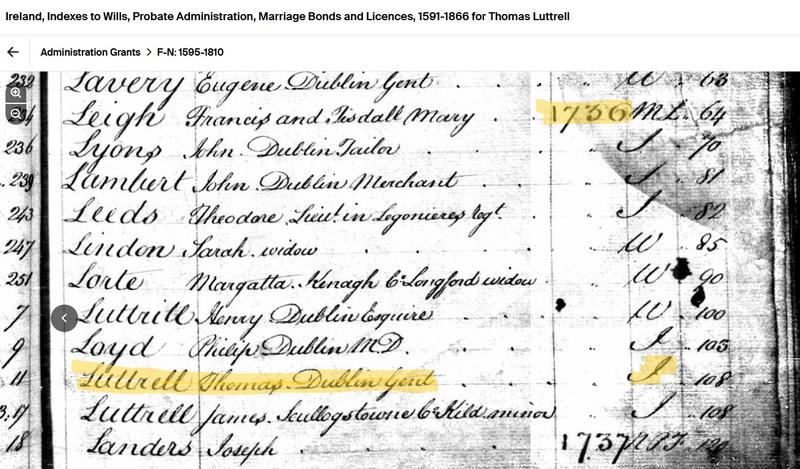 Ireland, Indexes to Wills, Probate Administration, Marriage Bonds and Licences, 1591-1866 for Thomas Luttrell
Administration Grants > F-N: 1595-1810
232 Lavery Eugene Dublin Gent W 63
Leigh Francis and Tisdall Mary 1736 M L 64
236 Lyons John Dublin Tailor I 70
239 Lambert John Dublin Merchant I 81
243 Leeds Theodore Lieut in Legonieres regt I 82
247 Lindon Sarah widow W 85
251 Lorte Margatta Kenagh Co Longford widow W 90
7 Luttrill Henry Dublin Esquire W 100
9 Loyd Philip Dublin M.D. I 103
11 Luttrell Thomas Dublin Gent I 108
17 Luttrell James Scullogstowne Co Kild minor I 108
18 Landers Joseph 1737